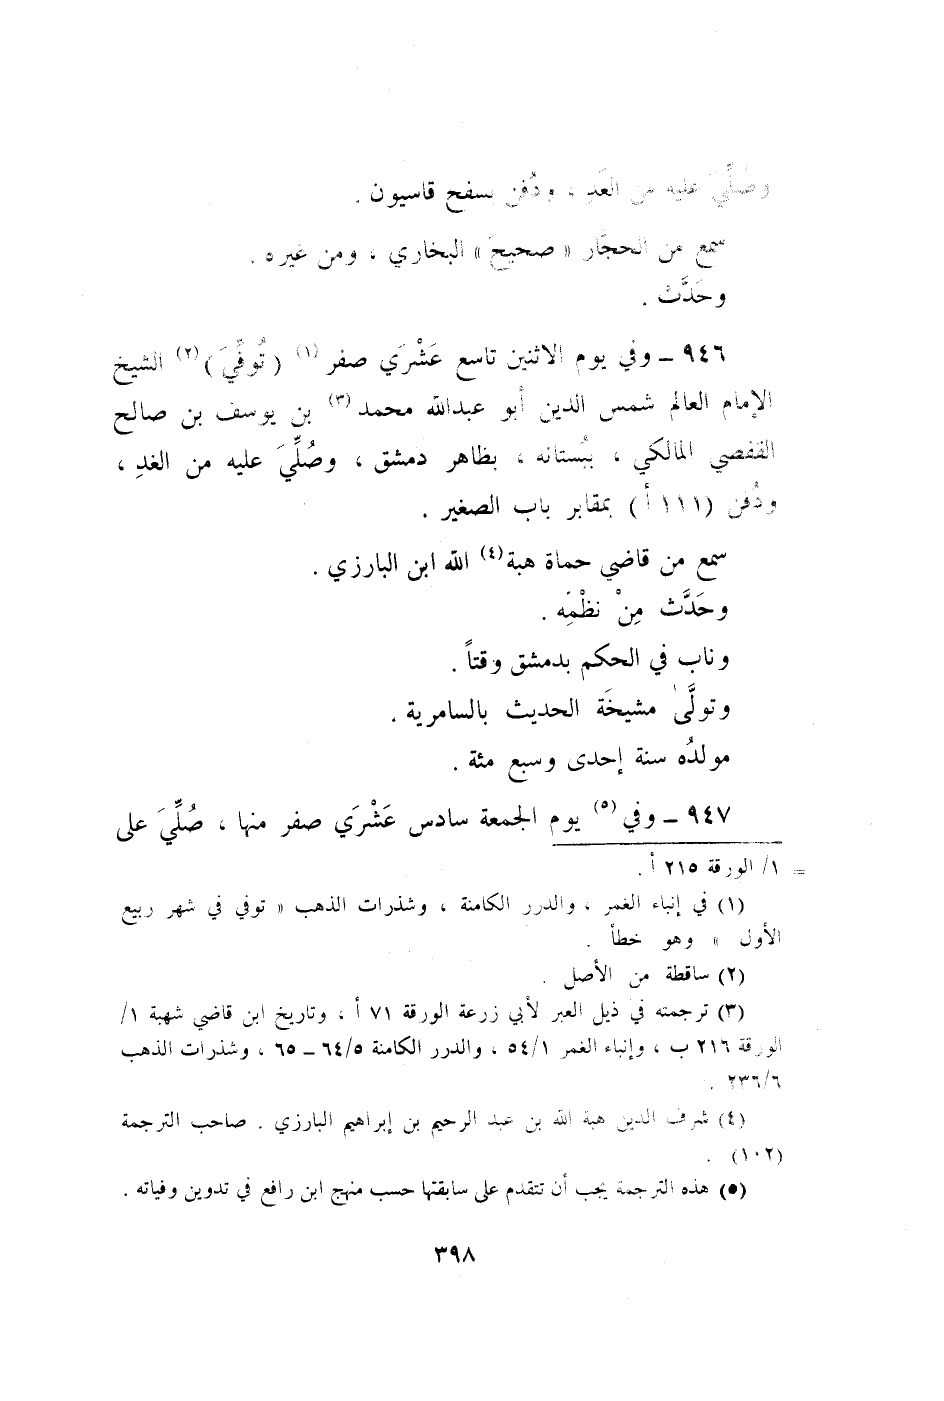 وصُلِّيَ عليه من الغَدِ ، ودُفن بسفح قاسيون .
سمع من الحجَّار « صحيحَ » البخاري ، ومن غيره .
وحَدَّثَ .
٩٤٦ – وفي يوم الاثنين تاسع عَشْرَي صفر (١) ( تُوفِّيَ ) (٢) الشيخ
الإمام العالم شمس الدين أبو عبدالله محمد (٣) بن يوسف بن صالح
القفصي المالكي ، ببُستانه ، بظاهر دمشق ، وصُلِّيَ عليه من الغدِ ،
ودُفن (١١١ أ) بمقابر باب الصغير .
سمع من قاضي حماة هبة (٤) الله ابن البارزي .
وحَدَّث مِنْ نظْمِه .
وناب في الحكم بدمشق وقتاً .
وتولَّى مشيخَة الحديث بالسامرية .
مولدُه سنة إحدى وسبع مئة .
٩٤٧ – وفي (٥) يوم الجمعة سادس عَشْرَي صفر منها ، صُلِّيَ على
= ١/ الورقة ٢١٥ أ .
(١) في إنباء الغمر ، والدرر الكامنة ، وشذرات الذهب « توفي في شهر ربيع
الأول » وهو خطأ .
(٢) ساقطة من الأصل .
(٣) ترجمته في ذيل العبر لأبي زرعة الورقة ٧١ أ ، وتاريخ ابن قاضي شهبة ١/
الورقة ٢١٦ ب ، وإنباء الغمر ٥٤/١ ، والدرر الكامنة ٦٤/٥ – ٦٥ ، وشذرات الذهب
٢٣٦/٦ .
(٤) شرف الدين هبة الله بن عبد الرحيم بن إبراهيم البارزي . صاحب الترجمة
(١٠٢) .
(٥) هذه الترجمة يجب أن تتقدم على سابقتها حسب منهج ابن رافع في تدوين وفياته .
٣٩٨